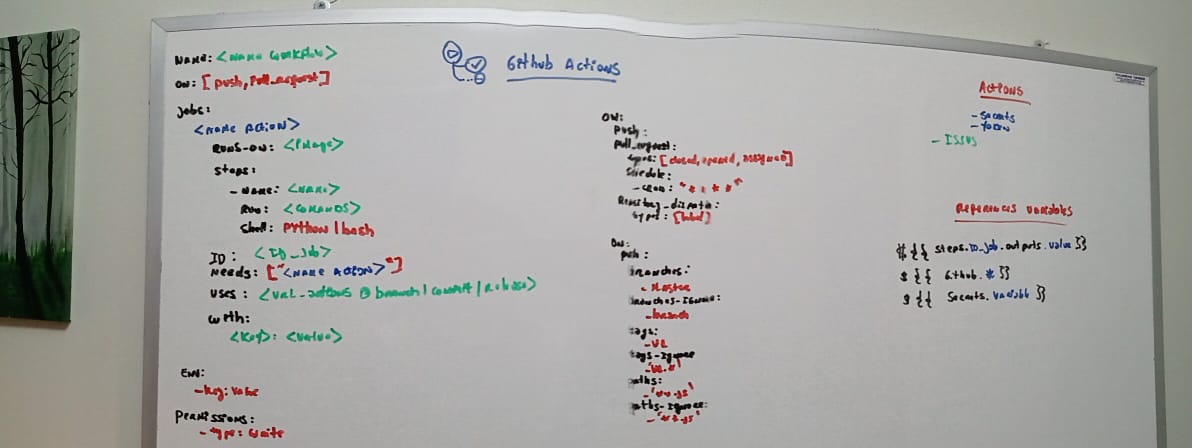 Github Actions
NAME: <NAME WORKFLOW>
ON: [push, Pull_request]
jobs:
<NAME ACTION>
RUNS-ON: <IMAGE>
steps:
- NAME: <NAME>
RUN: <COMANDS>
Shell: PYTHON | bash
ID: <ID_job>
NEEDS: ["<NAME ACTION>"]
USES: <URL_actions @ branch | commit | Release>
With:
<Key>: <Value>
ENV:
- Key: Value
PERMISSIONS:
- type: write
ON:
Push:
Pull_request:
types: [closed, opened, assigned]
- CRON: "* * * *"
types: [label]
ON:
push:
branches:
- Master
branches-Ignore:
- branch
tags:
tags-Ignore
paths:
- '**.js'
paths-Ignore:
- '**.js'
ACTIONS
- Secrets
- Token
- ISSUS
References variables
$ {{ steps.ID_job.outputs.value }}
$ {{ Github.* }}
$ {{ Secrets.Variable }}